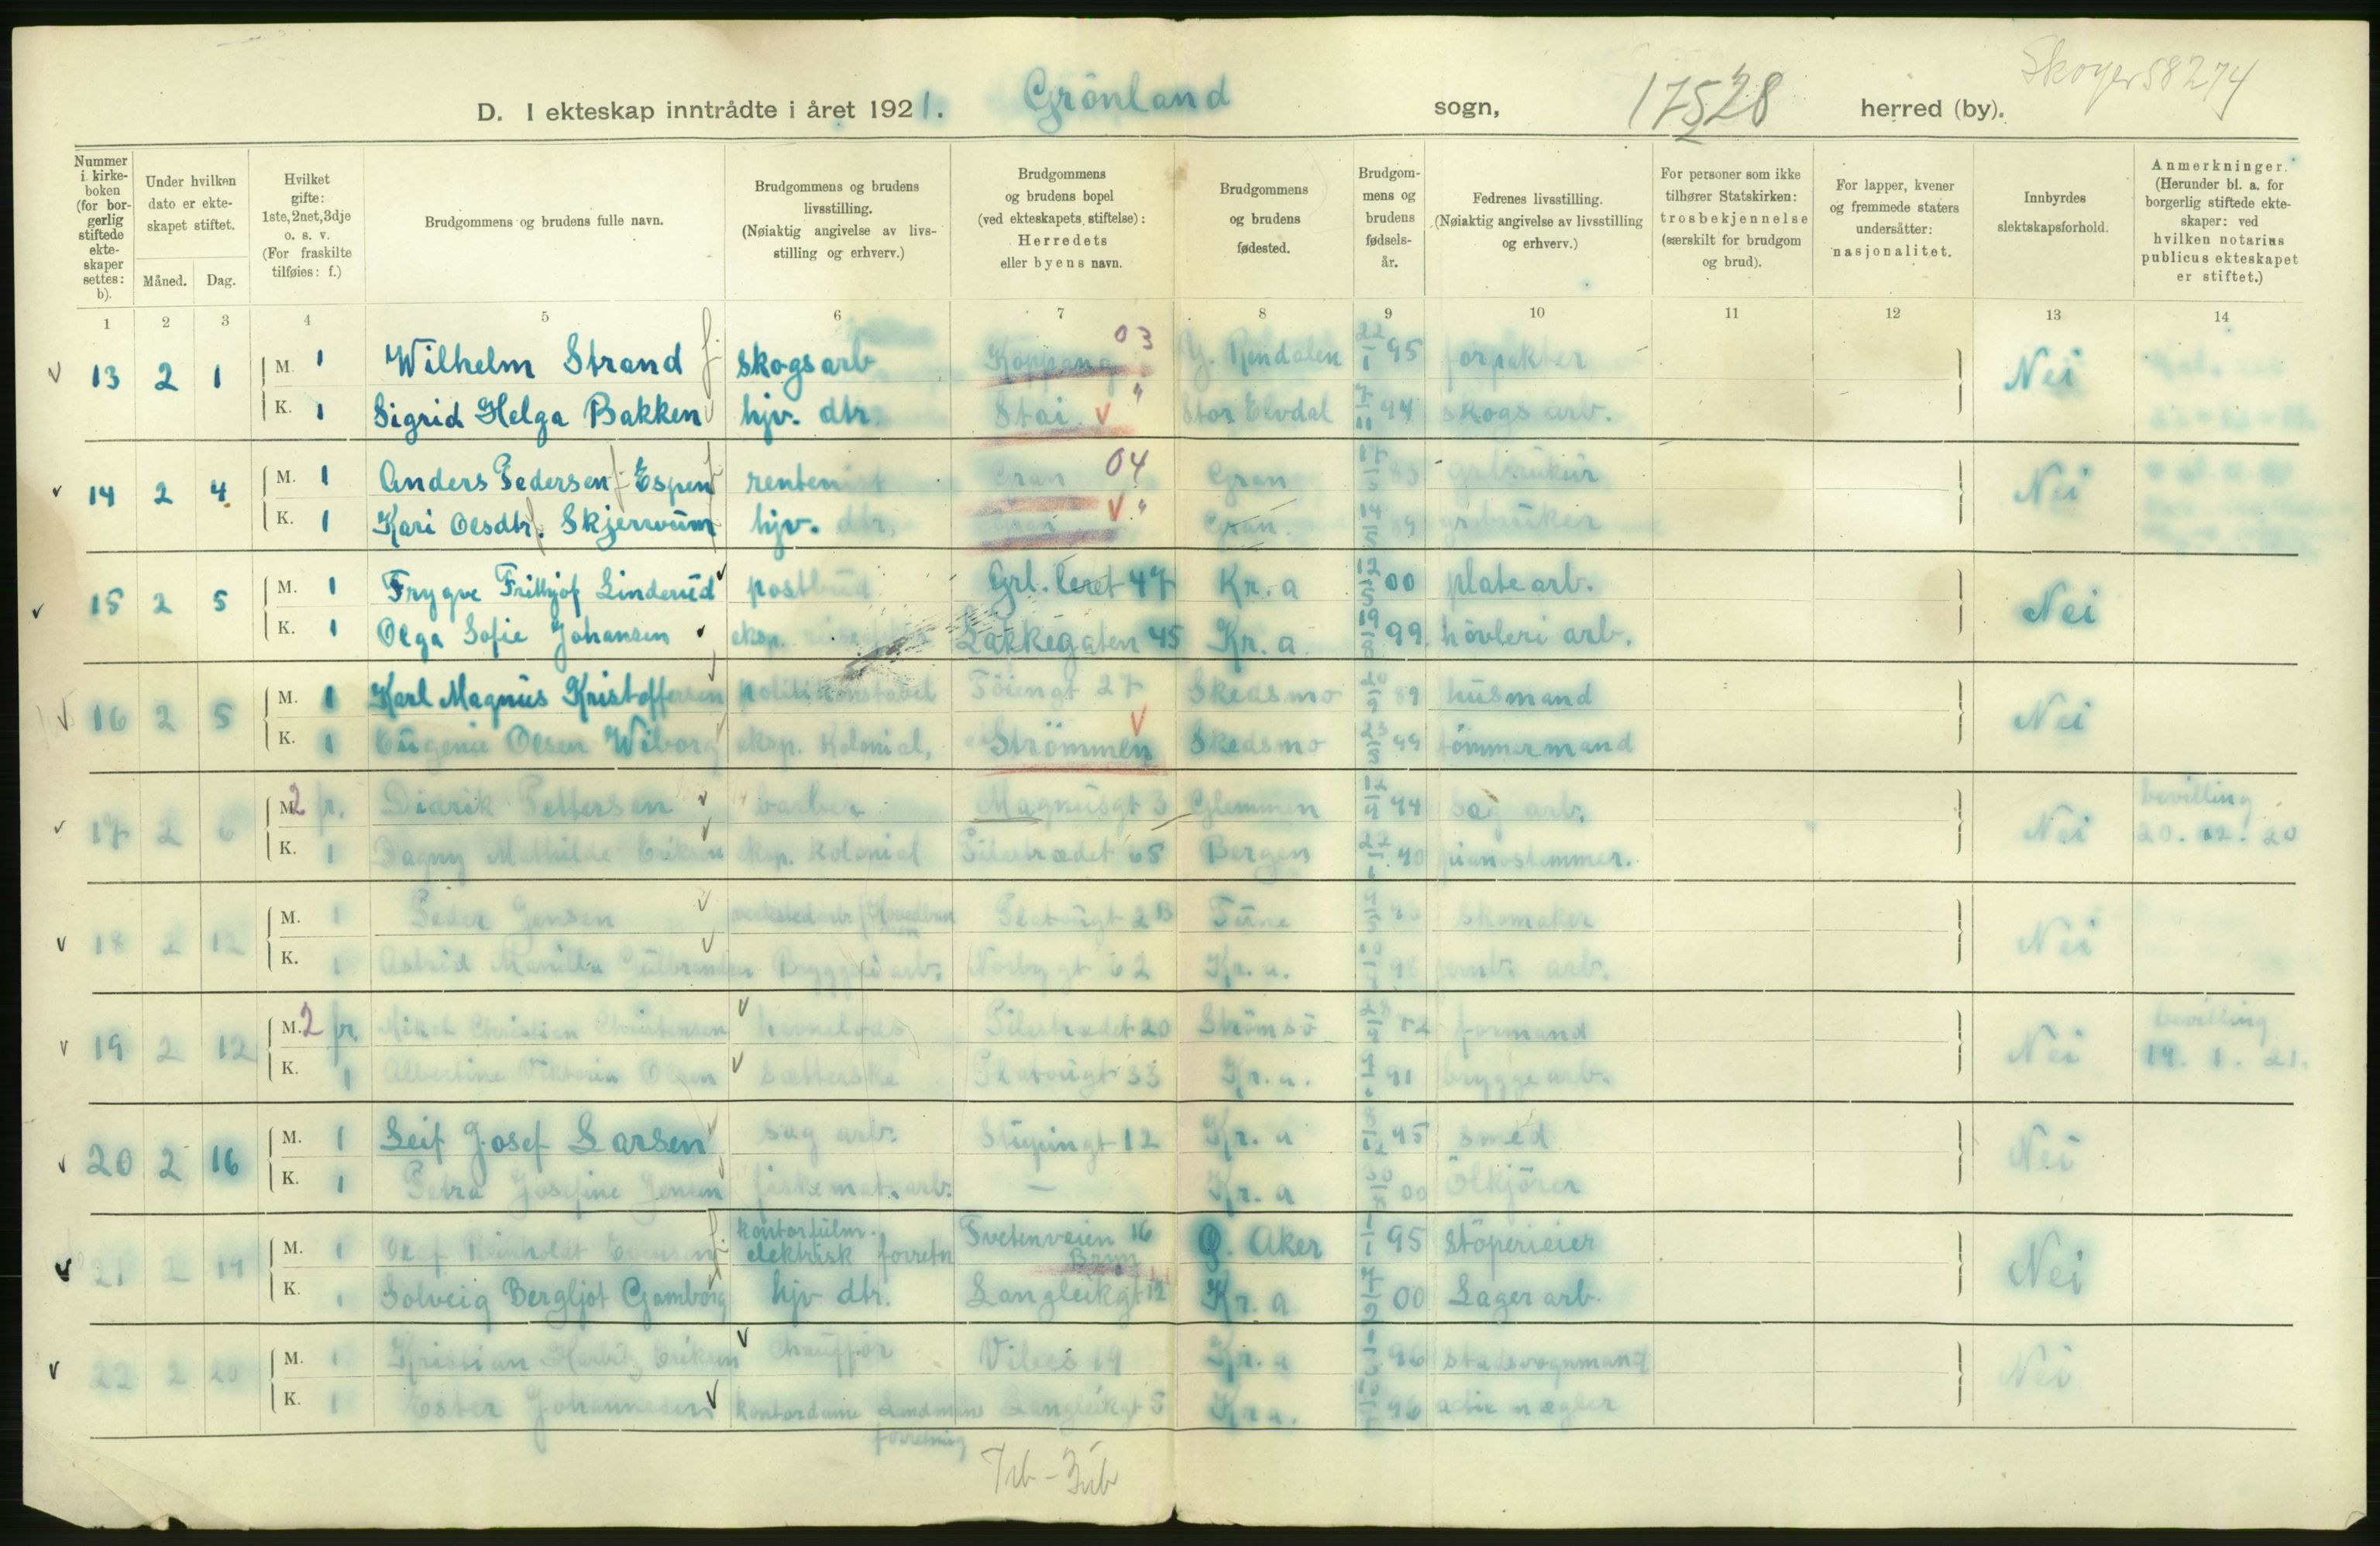 D. I ekteskap inntrådte i året 1921. Grönland sogn, 17528 herred (by). Skoger 58274
Nummer i kirkeboken (for borgerlig stiftede ekteskaper settes: b).
Under hvilken dato er ekteskapet stiftet.
Måned. Dag.
Hvilket gifte: 1ste, 2net, 3dje o. s. v. (For fraskilte tilføies: f.)
Brudgommens og brudens fulle navn.
Brudgommens og brudens livsstilling. (Nøiaktig angivelse av livsstilling og erhverv.)
Brudgommens og brudens bopel (ved ekteskapets stiftelse): Herredets eller byens navn.
Brudgommens og brudens fødested.
Brudgommens og brudens fødselsår.
Fedrenes livsstilling. (Nøiaktig angivelse av livsstilling og erhverv.)
For personer som ikke tilhører Statskirken: trosbekjennelse (særskilt for brudgom og brud).
For lapper, kvener og fremmede staters undersåtter: nasjonalitet.
Innbyrdes slektskapsforhold.
Anmerkninger. (Herunder bl. a. for borgerlig stiftede ekteskaper: ved hvilken notarius publicus ekteskapet er stiftet.)
1 2 3 4 5 6 7 8 9 10 11 12 13 14
13 2 1 M. 1 Wilhelm Strand skogsarb Koppang 03 Y. Rendalen 22/1 95 forpakter Nei
K. 1 Sigrid Helga Bakken hjv. dtr. Stai " Stor Elvdal 94 skogs arb.
14 2 4 M. 1 Anders Pedersen Espen rentenist Gran 04 Gran 83 grbruker Nei
K. 1 Kari Olsdtr. Skjervum hjv. dtr. Gran " Gran. 89 grbruker
15 2 5 M. 1 Trygve Frithjof Linderud postbud Grl. leret 47 Kr. a 12/5 00 platearb. Nei
K. 1 Olga Sofie Johansen eksp. Lakkegaten 45 Kr. a 99 hövleri arb.
16 2 5 M. 1 Karl Magnus Kristoffersen politikonstabel Töiengt 27 Skedsmo 89 husmand Nei
K. 1 Eugenie Olsen Wiborg eksp. Kolonial, Strömmen Skedsmo 99 tömmermand
17 2 6 M. 2 fr. Didrik Pettersen barber Magnusgt 3 Glemmen 94 sag arb. Nei bevilling
K. 1 Dagny Mathilde Eriksen eksp. Kolonial Pilestrædet 65 Bergen 90 pianostemmer. 20. 12. 20
18 2 12 M. 1 Peder Jensen verkstedarb. Hovedban Platougt 2B Tune skomaker Nei
K. 1 Astrid Manilla Gulbrandsen Bryggeri arb. Norbygt 62 Kr. a. 98 arb.
19 2 12 M. 2 fr. Mikal Christian Christensen havnelods Pilestrædet 20 Strömsö 82 formand Nei bevilling
K. 1 Albertine Viktoria Olsen sætterske Platougt 33 Kr. a. 91 brygge arb. 19. 1. 21.
20 2 16 M. 1 Leif Josef Larsen sag arb. Stupingt 12 Kr. a 95 smed Nei
K. 1 Petra Josefine Jensen fiskemat. arb. — Kr. a 00 Ölkjörer
21 2 19 M. 1 Olaf Reinholdt Evensen kontorfulm. elektrisk forretn Tvetenveien 16 Bryn Ö. Aker 95 Stöperieier Nei
K. 1 Solveig Bergljot Gamborg hjv dtr. Langleikgt 12 Kr. a 00 Lagerarb.
22 2 20 M. 1 Kristian Eriksen Chaufför Vibes 19 Kr. a 96 Stadsvognmand Nei
K. 1 Ester Johannesen kontordame Landmans forretning Langleikgt 5 Kr a. 96